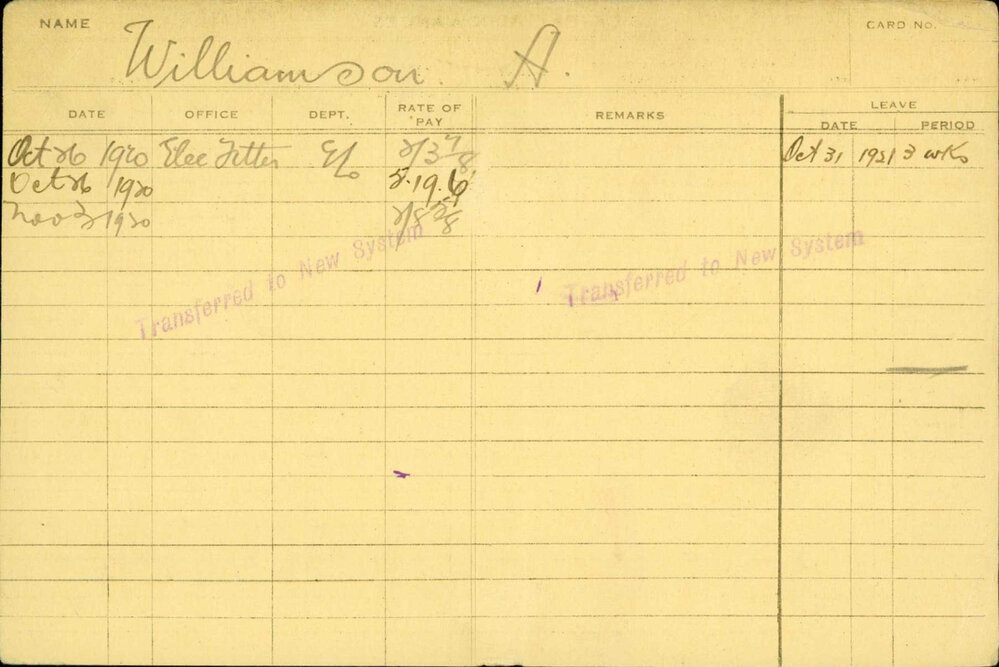 NAME Williamson A. CARD No.
DATE OFFICE DEPT. RATE OF PAY REMARKS LEAVE
DATE PERIOD
Oct 26 1920 Elec Fitter 2/3 7/8 Oct 31 1921 3 wks
Oct 26 1920 5.19.6
Nov 3 1920 2/8 5/8
Transferred to New System
Transferred to New System